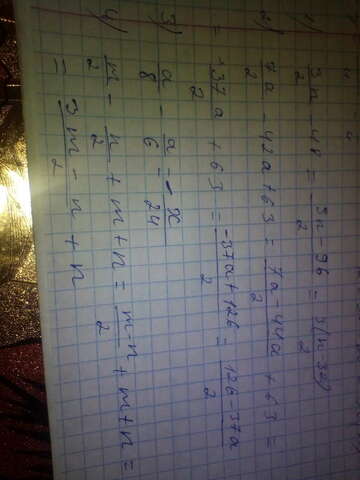 1) 3n/2 - 48 = (3n - 96)/2 = 3(n - 32)/2
2) 7a/2 - 42a + 63 = (7a - 44a)/2 + 63 =
= -37a/2 + 63 = (-37a + 126)/2 = (126 - 37a)/2
3) a/8 - a/6 = - x/24
4) m/2 - n/2 + m + n = (m - n)/2 + m + n =
= (3m - n + n)/2